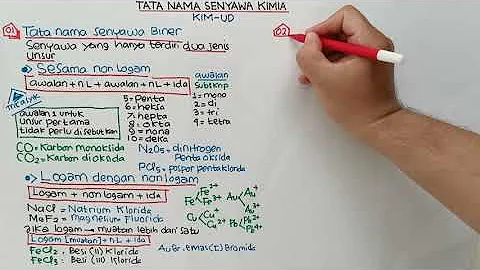 TATA NAMA SENYAWA KIMIA
KIM-UD
01 Tata nama senyawa Biner
Senyawa yang hanya terdiri dua jenis
unsur
Sesama non logam
awalan + nL + awalan + nL + ida
awalan
subskrip
1 = mono
2 = di
3 = tri
4 = tetra
5 = Penta
6 = heksa
7 = hepta
8 = okta
9 = nona
10 = deka
awalan 1 untuk
unsur pertama
tidak perlu disebutkan
CO = Karbon monoksida
CO2 = Karbon dioksida
N2O5 = dinitrogen
Penta oksida
PCl5 = pospor penta klorida
Logam dengan non logam
Logam + non logam + ida
NaCl = Natrium Klorida
MgF2 = magnesium Fluorida
Jika logam → muatan lebih dari satu
Logam [muatan] + nL + ida
FeCl2 : Besi (II) Klorida
FeCl3 : Besi (III) Klorida
Fe Fe2+
Fe3+
Au Au+
Au3+
Cu Cu+
Cu2+
Pb Pb2+
Pb4+
AuBr : emas(I) Bromida
02